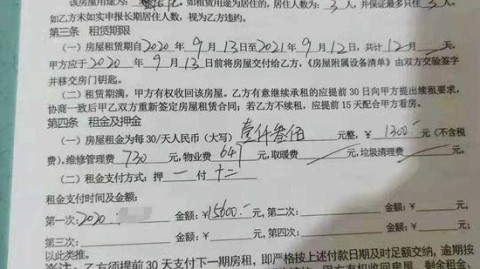 该房屋用途为: 如租赁用途为居住的，居住人数为: 3 人，并保证最多只住 3 人，
如乙方未如实申报长期居住人数，视为乙方违约。
第三条 租赁期限
（一）房屋租赁期自 2020 年 9 月 13 日至 2021 年 9 月 12 日，共计 12 月
甲方应于 2020 年 9 月 13 日前将房屋交付给乙方，《房屋附属设备清单》由双方交验签字
并移交房门钥匙。
（二）租赁期满，甲方有权收回该房屋。乙方有意继续承租的应提前 30 日向甲方提出续租要求，
协商一致后甲乙双方重新签定房屋租赁合同；若乙方不续租，应提前 15 天配合甲方看房。
第四条 租金及押金
（一）房屋租金为每 30/天人民币（大写）壹仟叁佰 元整，¥ 1300 元（不含税
费）,维修管理费 730 元，物业费 647 元，取暖费 元，垃圾清理费 元。
（二）租金支付方式：押 一 付 十二
租金支付时间及金额：
第一次：2020 金额：¥15600 元，第二次： 金额： 元，
第三次： 金额： 元，第四次： 金额： 元，
以此类推。
乙方须提前 30 天支付下一期房租，即严格按上述付款日期及时足额交纳，逾期按
甲方有权收回房屋，剩余租金、